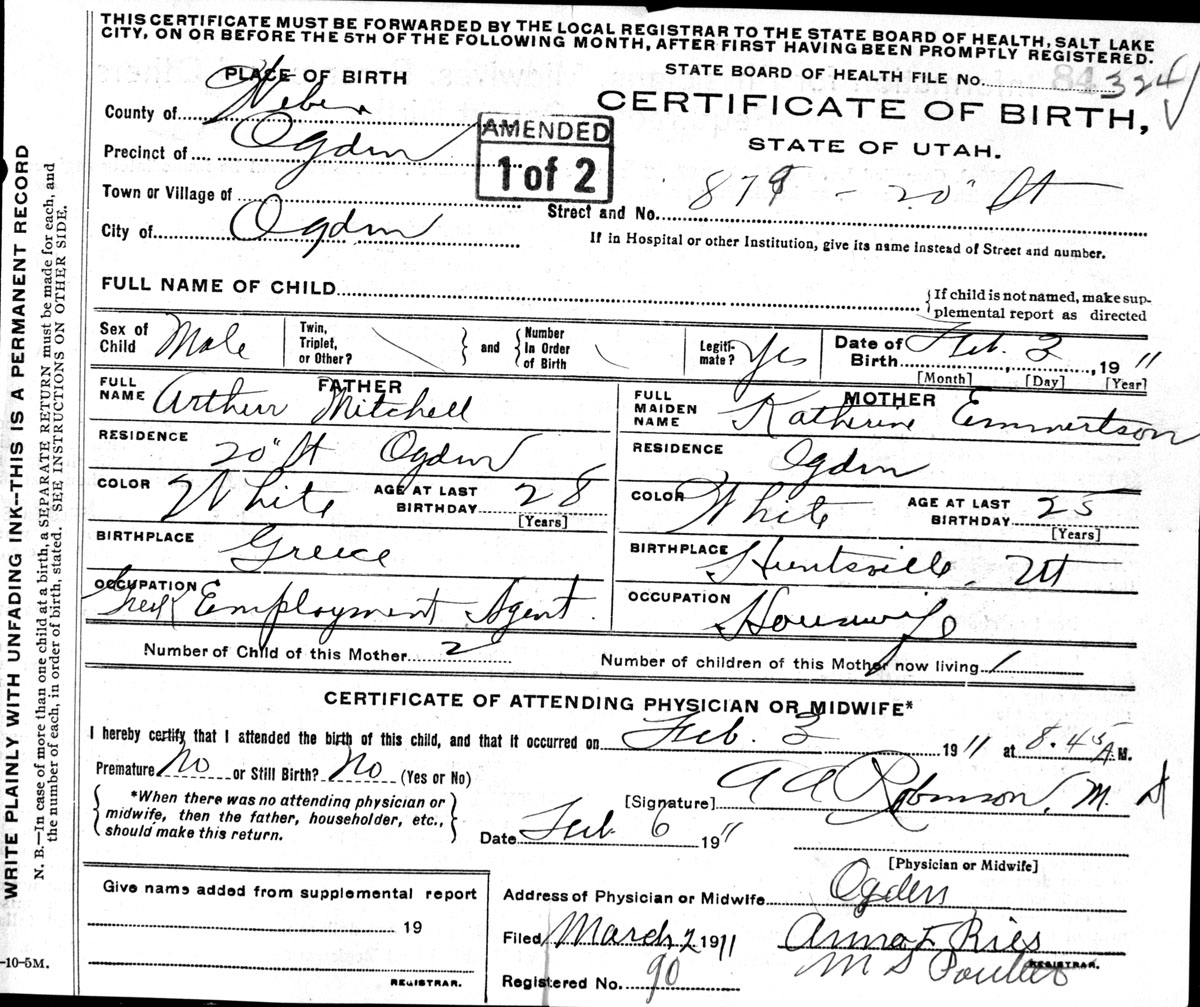 THIS CERTIFICATE MUST BE FORWARDED BY THE LOCAL REGISTRAR TO THE STATE BOARD OF HEALTH, SALT LAKE
CITY, ON OR BEFORE THE 5TH OF THE FOLLOWING MONTH, AFTER FIRST HAVING BEEN PROMPTLY REGISTERED.
PLACE OF BIRTH
STATE BOARD OF HEALTH FILE No. 324
County of Weber
CERTIFICATE OF BIRTH,
STATE OF UTAH.
AMENDED
1 of 2
Precinct of Ogden
Town or Village of
Street and No. 879 - 20" St
City of Ogden
If in Hospital or other Institution, give its name instead of Street and number.
FULL NAME OF CHILD
{If child is not named, make sup-
plemental report as directed
Sex of Child Male
Twin, Triplet, or Other?
and
Number In Order of Birth
Legiti-mate? Yes
Date of Birth Feb. 3, 1911
[Month] [Day] [Year]
FATHER
FULL NAME Arthur Mitchell
MOTHER
FULL MAIDEN NAME Katherine Emmertson
RESIDENCE 20" St Ogden
RESIDENCE Ogden
COLOR White AGE AT LAST BIRTHDAY 28 [Years]
COLOR White AGE AT LAST BIRTHDAY 25 [Years]
BIRTHPLACE Greece
BIRTHPLACE Huntsville, Ut
OCCUPATION Greek Employment Agent
OCCUPATION Housewife
Number of Child of this Mother 2
Number of children of this Mother now living 1
CERTIFICATE OF ATTENDING PHYSICIAN OR MIDWIFE*
I hereby certify that I attended the birth of this child, and that it occurred on Feb. 3 1911 at 8.45 A.M.
Premature No or Still Birth? No (Yes or No)
*When there was no attending physician or
midwife, then the father, householder, etc.,
should make this return.
[Signature] A A Robinson, M. D
Date Feb. 6 1911
[Physician or Midwife]
Give name added from supplemental report
19
REGISTRAR.
Address of Physician or Midwife Ogden
Filed March 2 1911 Anna F Ries
M S Poulter
REGISTRAR.
Registered No. 90
WRITE PLAINLY WITH UNFADING INK--THIS IS A PERMANENT RECORD
N. B.—In case of more than one child at a birth, a SEPARATE RETURN must be made for each, and
the number of each, in order of birth, stated. SEE INSTRUCTIONS ON OTHER SIDE.
-10-5M.